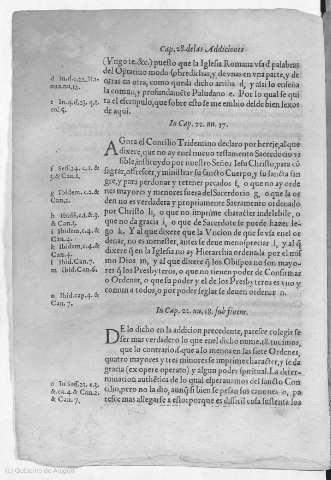 Cap. 28. de las Addiciones
(Vngo te. &c.) puesto que la Iglesia Romana vsa d̃ palabras
del Optatiuo modo sobredichas, y de vnas en vna parte, y de
otras en otra, como queda dicho arriba d, y assi lo enseña
la comũ, y profundamẽte Paludano e. Por lo qual se qui
ta el escrupulo, que sobre esto se me embio desde bien lexos
de aqui.
In Cap. 22. nu. 17.
AGora el Concilio Tridentino declaro por hereje, al que
dixere, que no ay en el nueuo testamento Sacerdocio vi
sible, instituydo por nuestro Señor Iesu Christo, para cõ
sagrar, offrescer, y ministrar su sancto Cuerpo, y su sancta san
gre, y para perdonar y retener pecados f, o que no ay orde
nes mayores y menores fuera del Sacerdocio g, o que la or
den no es verdadera y propriamente Sacramento ordenado
por Christo h, o que no imprime character indeleble, o
que no da gracia i, o que de Sacerdote se puede hazer le
go k. Y al que dixere que la Vncion de que se vsa en el or
denar, no es menester, antes se deue menospreciar l, y al q̃
dixere q̃ en la Iglesia no ay Hierarchia ordenada por el mis
mo Dios m, y al que dixere q̃ los Obispos no son mayo
res q̃ los Presbyteros, o que no tienen poder de Confirmar
o Ordenar, o que essa poder y el de los Presbyteros es vno y
comun a todos, o por poder seglar se deuen ordenar n.
In Cap. 22. nu. 18. sub finem.
DE lo dicho en la addicion precedente, paresce colegir se
ser mas verdadero lo que en el dicho nume. 18. tuuimos,
que lo contrario s. que a lo menos en las siete Ordenes,
quatro mayores y tres menores se imprime character, y se da
gracia (ex opere operato) y algun poder spiritual. La deter-
minacion authẽtica de lo qual esperauamos del sancto Con
cilio, pero no la dio, aunq̃ si bien se pesan sus canones o, pa
resce mas allegarse a esto: porque es dificil cosa sustenta los
e In. 4. d. 23. q. 1.
f Sess. 23. c. 1. &
Can. 1.
g Ibidem. c. 2. &
Can. 2.
h Ibidẽ. c. 3. &
Can. 3.
i Ibidem. c. 4. &
Can. 4.
k Ibidem. c. 4. &
Can. 4.
l Ibid. Can. 5.
m Ibid. Can. 6.
n Ibid. cap. 4. &
Can. 7.
(c) Gobierno de Aragón